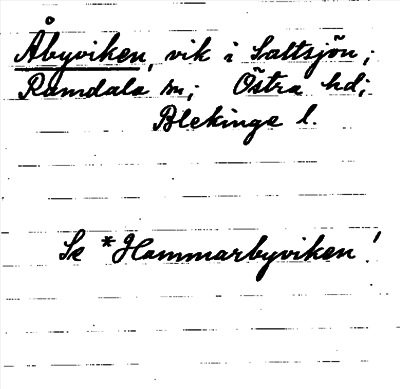 Åbyviken, vik i Saltsjön;
Ramdala sn; Östra hd;
Blekinge l.
Se *Hammarbyviken!